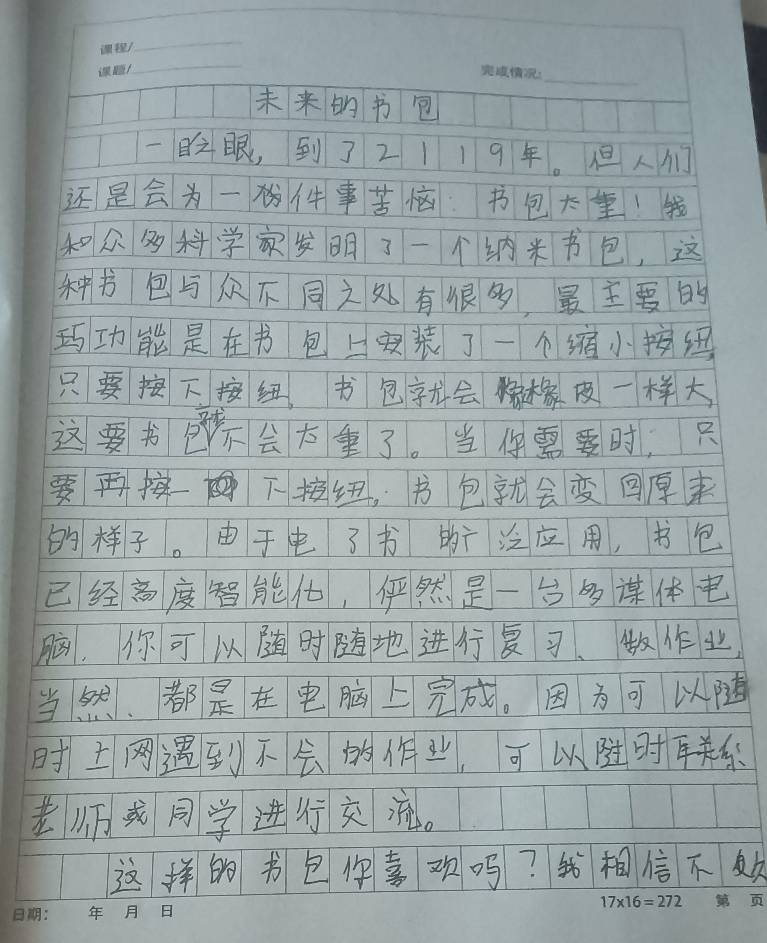 课程/
课题/
完成情况:
未来的书包
一眨眼，到了2119年。但人们
还是会为一份件事苦恼：书包太重！我
和众多科学家发明了一个纳米书包，这
种书包与众不同之处有很多，最主要的
巧功能是在书包上安装了一个缩小按钮，
只要按下按纽，书包就会像橡皮一样大，
这要书包就不会太重了。当你需要时，只
要再按一下按纽，书包就会变回原来
的样子。由于电了书的广泛应用，书包
已经高度智能化，俨然是一台多谋体电
脑，你可以随时随地进行复习、做作业，
当然、都是在电脑上完成。因为可以随
时上网遇到不会的作业，可以随时联系
老师或同学进行交流。
这样的书包你喜欢吗？我相信不
日期： 年 月 日
17x16=272 第 页